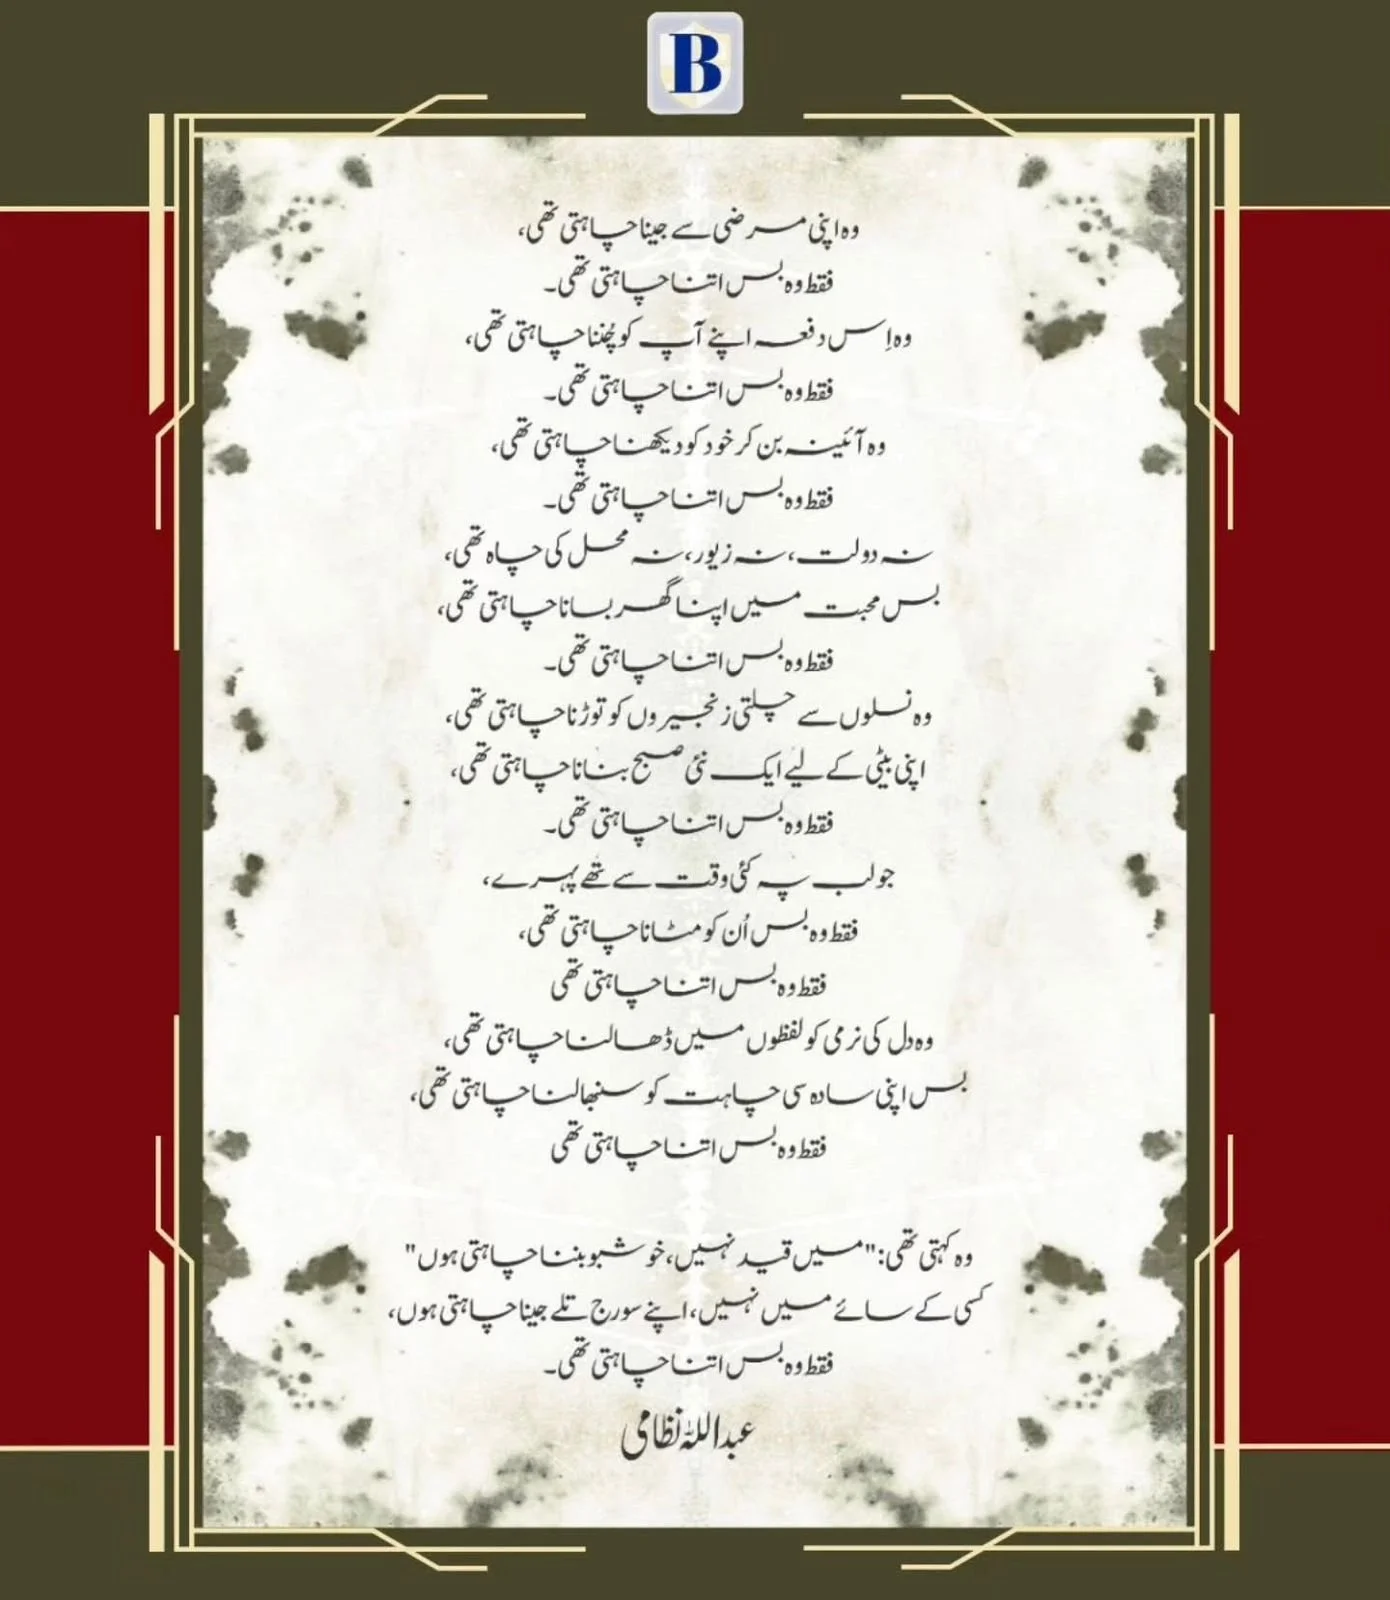 B
وہ اپنی مرضی سے جینا چاہتی تھی،
فقط وہ بس اتنا چاہتی تھی۔
وہ اِس دفعہ اپنے آپ کو چُننا چاہتی تھی،
فقط وہ بس اتنا چاہتی تھی۔
وہ آئینہ بن کر خود کو دیکھنا چاہتی تھی،
فقط وہ بس اتنا چاہتی تھی۔
نہ دولت، نہ زیور، نہ محل کی چاہ تھی،
بس محبت میں اپنا گھر بسانا چاہتی تھی،
فقط وہ بس اتنا چاہتی تھی۔
وہ نسلوں سے چلتی زنجیروں کو توڑنا چاہتی تھی،
اپنی بیٹی کے لیے ایک نئی صبح بنانا چاہتی تھی،
فقط وہ بس اتنا چاہتی تھی۔
جو لب پہ کئی وقت سے تھے پہرے،
فقط وہ بس اُن کو مٹانا چاہتی تھی،
فقط وہ بس اتنا چاہتی تھی
وہ دل کی نرمی کو لفظوں میں ڈھالنا چاہتی تھی،
بس اپنی سادہ سی چاہت کو سنبھالنا چاہتی تھی،
فقط وہ بس اتنا چاہتی تھی
وہ کہتی تھی: "میں قید نہیں، خوشبو بننا چاہتی ہوں"
کسی کے سائے میں نہیں، اپنے سورج تلے جینا چاہتی ہوں،
فقط وہ بس اتنا چاہتی تھی۔
عبداللہ نظامی